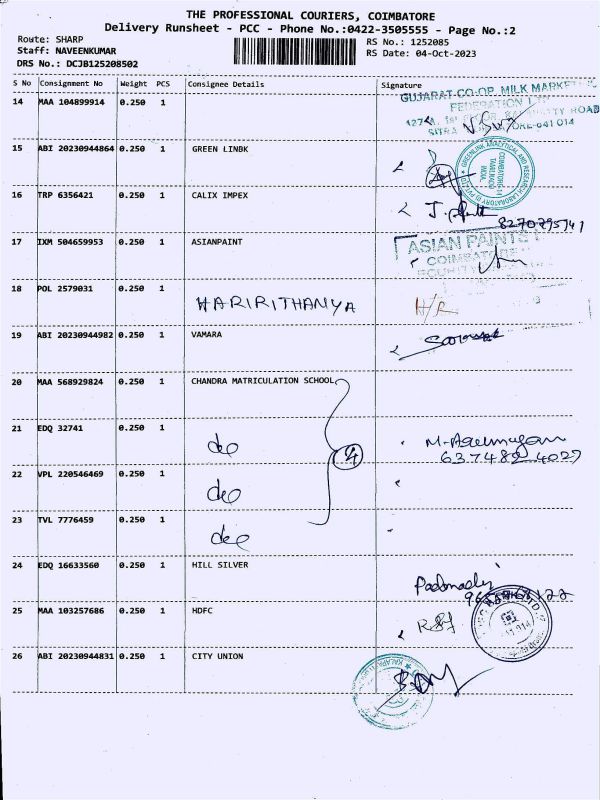 THE PROFESSIONAL COURIERS, COIMBATORE
Delivery Runsheet - PCC - Phone No.:0422-3505555 - Page No.:2
Route: SHARP
Staff: NAVEENKUMAR
DRS No.: DCJB125208502
RS No.: 1252085
RS Date: 04-Oct-2023
S No Consignment No Weight PCS Consignee Details Signature
14 MAA 104899914 0.250 1
GUJARAT CO-OP. MILK MARKET
FEDERATION
ROAD
SITRA 641 014
15 ABI 20230944864 0.250 1 GREEN LINBK
GREENLINK ANALYTICAL AND RESEARCH LABORATORY (I) PVT LTD
COIMBATORE-14
TAMILNADU
INDIA
16 TRP 6356421 0.250 1 CALIX IMPEX
8270795741
17 IXM 504659953 0.250 1 ASIANPAINT
ASIAN PAINTS
COIMBATORE
18 POL 2579031 0.250 1 HARIRITHANYA H/R
19 ABI 20230944982 0.250 1 VAMARA
20 MAA 568929824 0.250 1 CHANDRA MATRICULATION SCHOOL
21 EDQ 32741 0.250 1 do 4
637482 4027
22 VPL 220546469 0.250 1 do
23 TVL 7776459 0.250 1 do
24 EDQ 16633560 0.250 1 HILL SILVER
25 MAA 103257686 0.250 1 HDFC
26 ABI 20230944831 0.250 1 CITY UNION